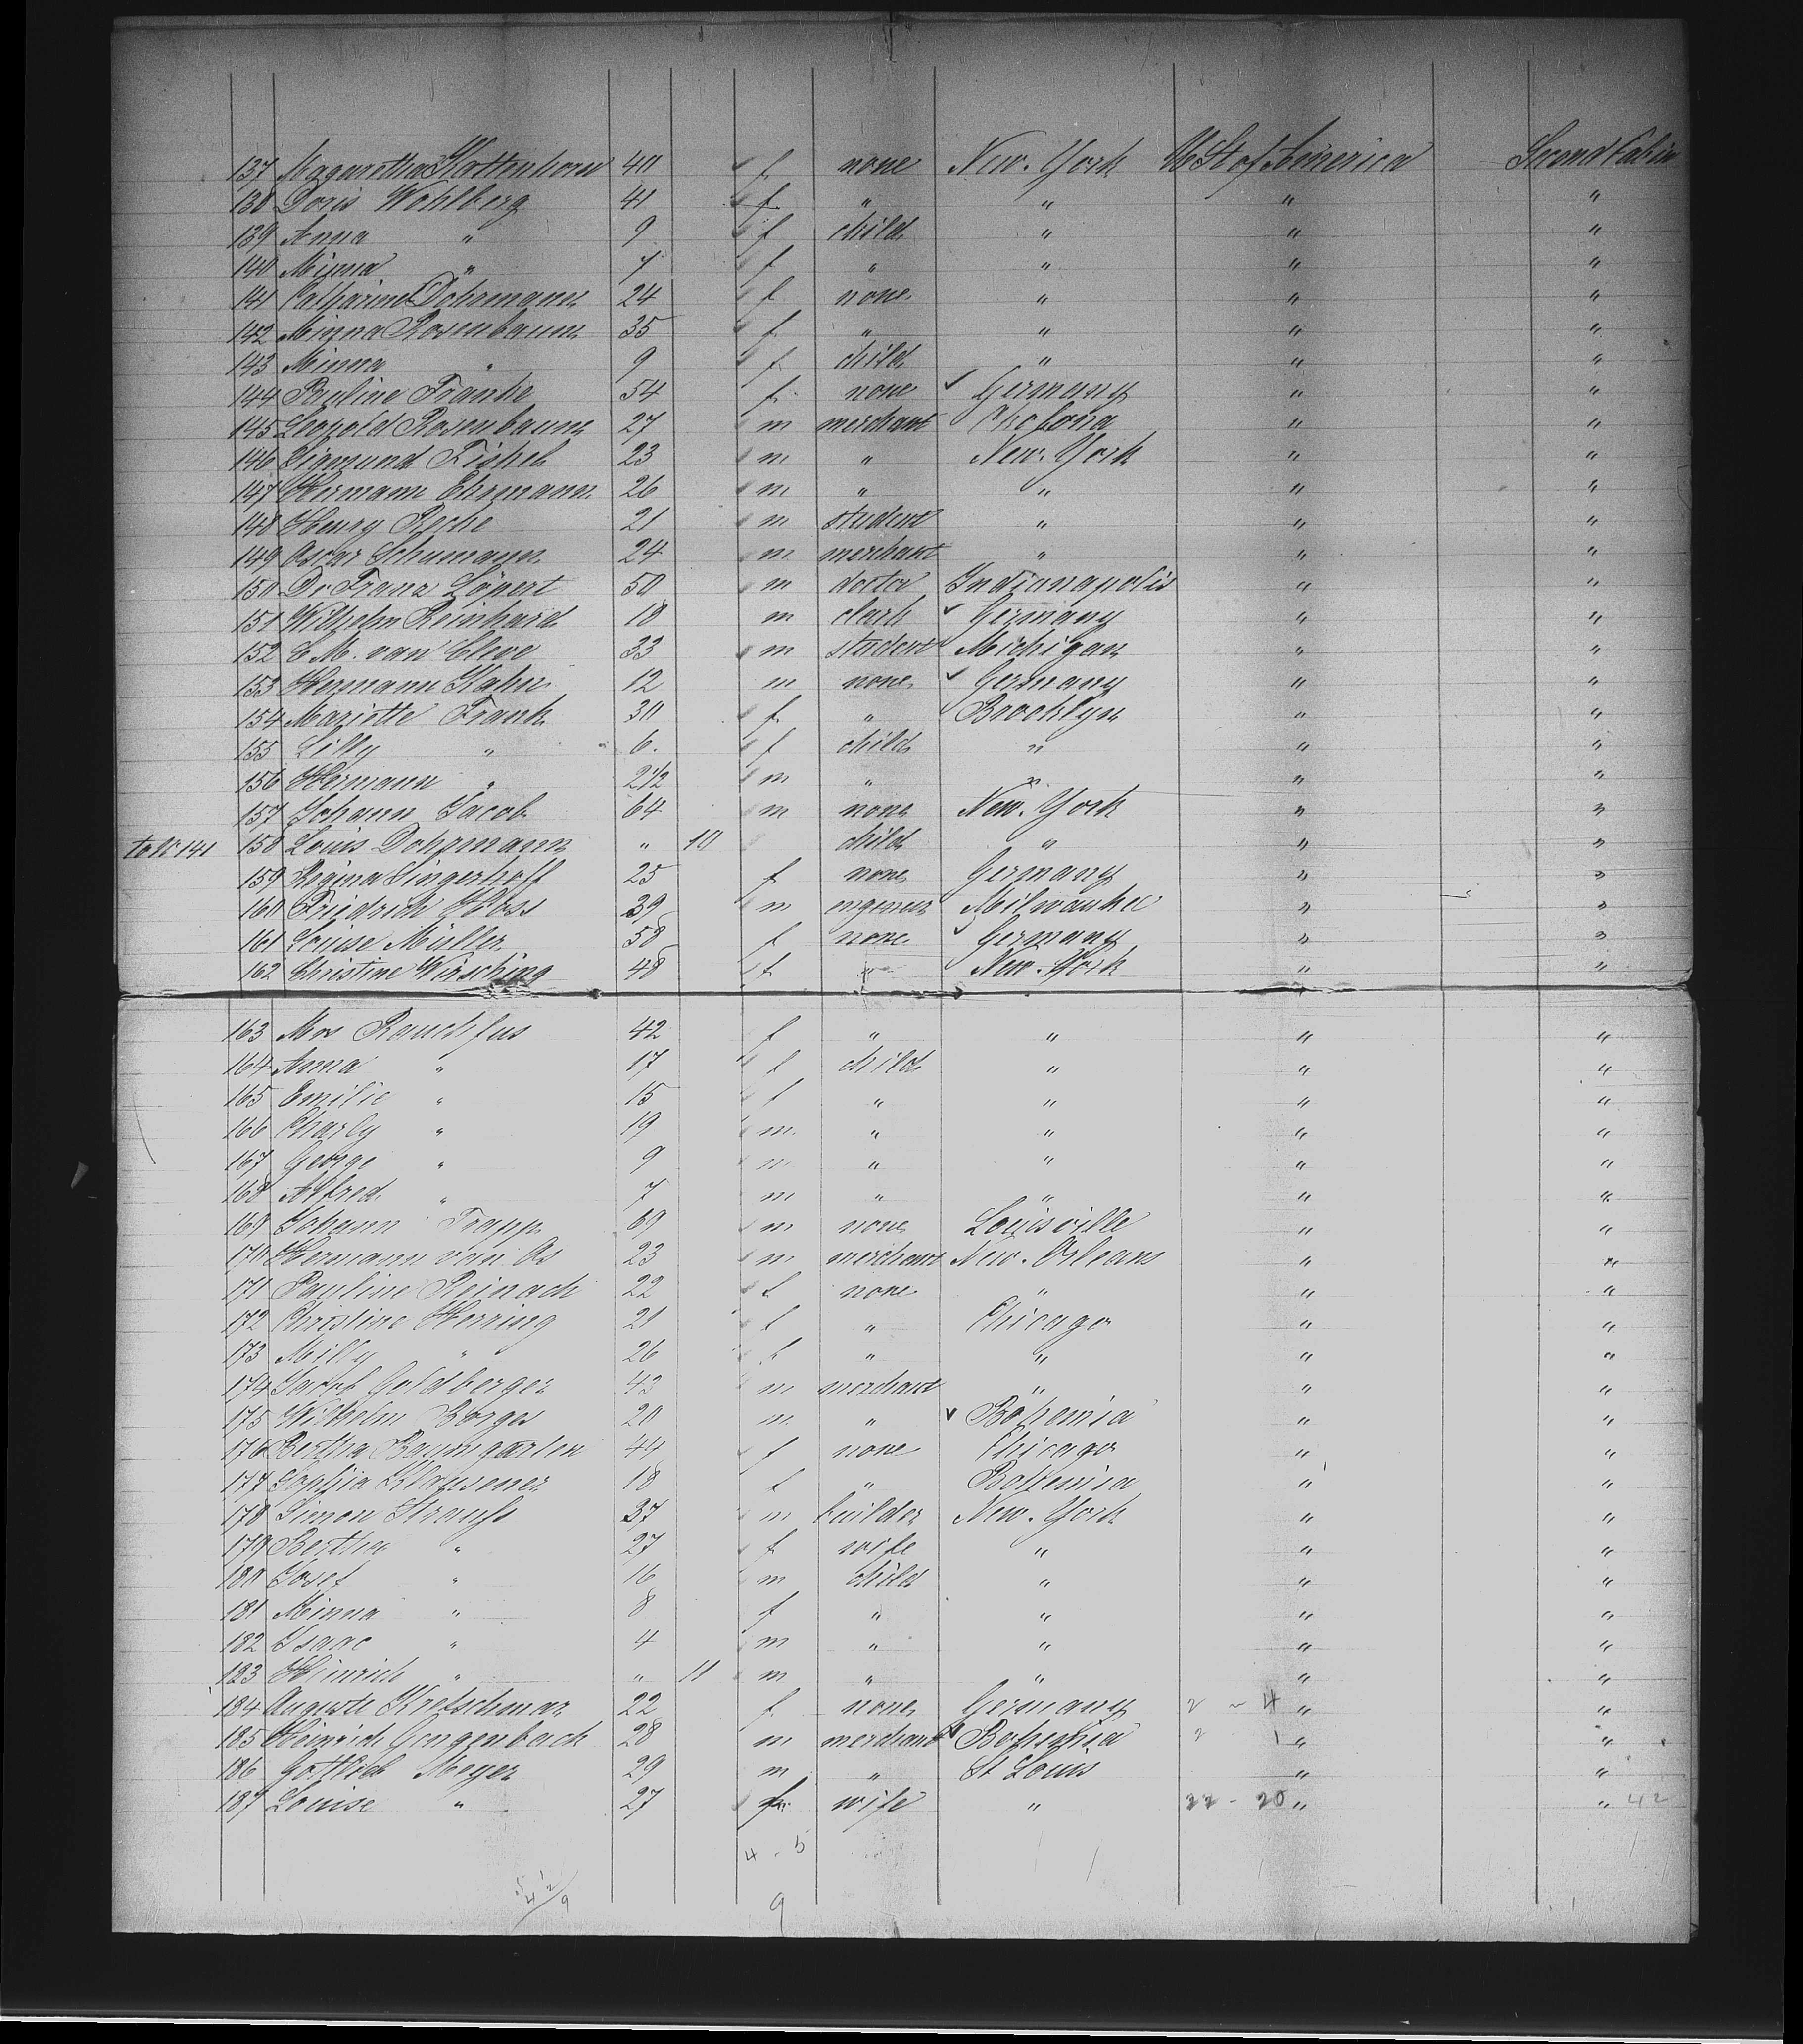 137 Magaretha Kottenhorn 40 f none New-York U St of America Second Cabin
138 Doris Wohlberg 41 f " " " "
139 Anna " 9 f child " " "
140 Minna " 7 f " " " "
141 Catharine Dohrmann 24 f none " " "
142 Minna Rosenbaum 35 f " " " "
143 Minna " 9 f child " " "
144 Pauline Franke 54 f none ✓ Germany " "
145 Leopold Rosenbaum 27 m merchant " "
146 Sigmund Fishel 23 m " New-York " "
147 Hermann Ehrmann 26 m " " " "
148 Henry Reche 21 m student " " "
149 Oscar Schumann 24 m merchant " " "
150 Dr Franz Löpert 50 m doctor Indianapolis " "
151 Wilhelm Reinhard 18 m clark ✓ Germany " "
152 C M. van Cleve 33 m student Michigan " "
153 Hermann Kahn 12 m none ✓ Germany " "
154 Mariette Frank 30 f " Brooklyn " "
155 Lilly " 6. f child " " "
156 Hermann " 2 1/2 m " " " "
157 Johann Jacob 64 m none New-York " "
to No 141 158 Louis Dohrmann " 10 child " " "
159 Regina Singerhoff 25 f none Germany " "
160 Friedrich Hoss 39 m engeneur Milwaukee " "
161 Louise Müller 58 f none ✓ Germany " "
162 Christine Wirsching 48 f " New-York " "
163 Mrs Rauchfus 42 f " " " "
164 Anna " 17 f child " " "
165 Emilie " 15 f " " " "
166 Charly " 19 m " " " "
167 George " 9 m " " " "
168 Alfred " 7 m " " " "
169 Johann Trapp 69 m none Louisville " "
170 Hermann van Os 23 m merchant New-Orleans " "
171 Pauline Reinach 22 f none " " "
172 Christine Herring 21 f " Chicago " "
173 Milly " 26 f " " " "
174 Jacob Goldberger 43 m merchant " " "
175 Wilhelm Borges 20 m " ✓ Bohemia " "
176 Bertha Baumgarten 44 f none Chicago " "
177 Sophia Klausener 18 f " Bohemia " "
178 Simon Strauss 37 m builder New-York " "
179 Bertha " 27 f wife " " "
180 Josef " 16 m child " " "
181 Minna " 8 f " " " "
182 Isaac " 4 m " " " "
183 Heinrich " " 11 m " " " "
184 Auguste Kretschmar 22 f none Germany 2 - 4 " "
185 Heinrich Gengenbach 28 m merchant ✓ Bohemia 2 1 " "
186 Gottlieb Meyer 29 m " St Louis " "
187 Louise " 27 f wife " 22 - 20 " " 42
4 - 5
9